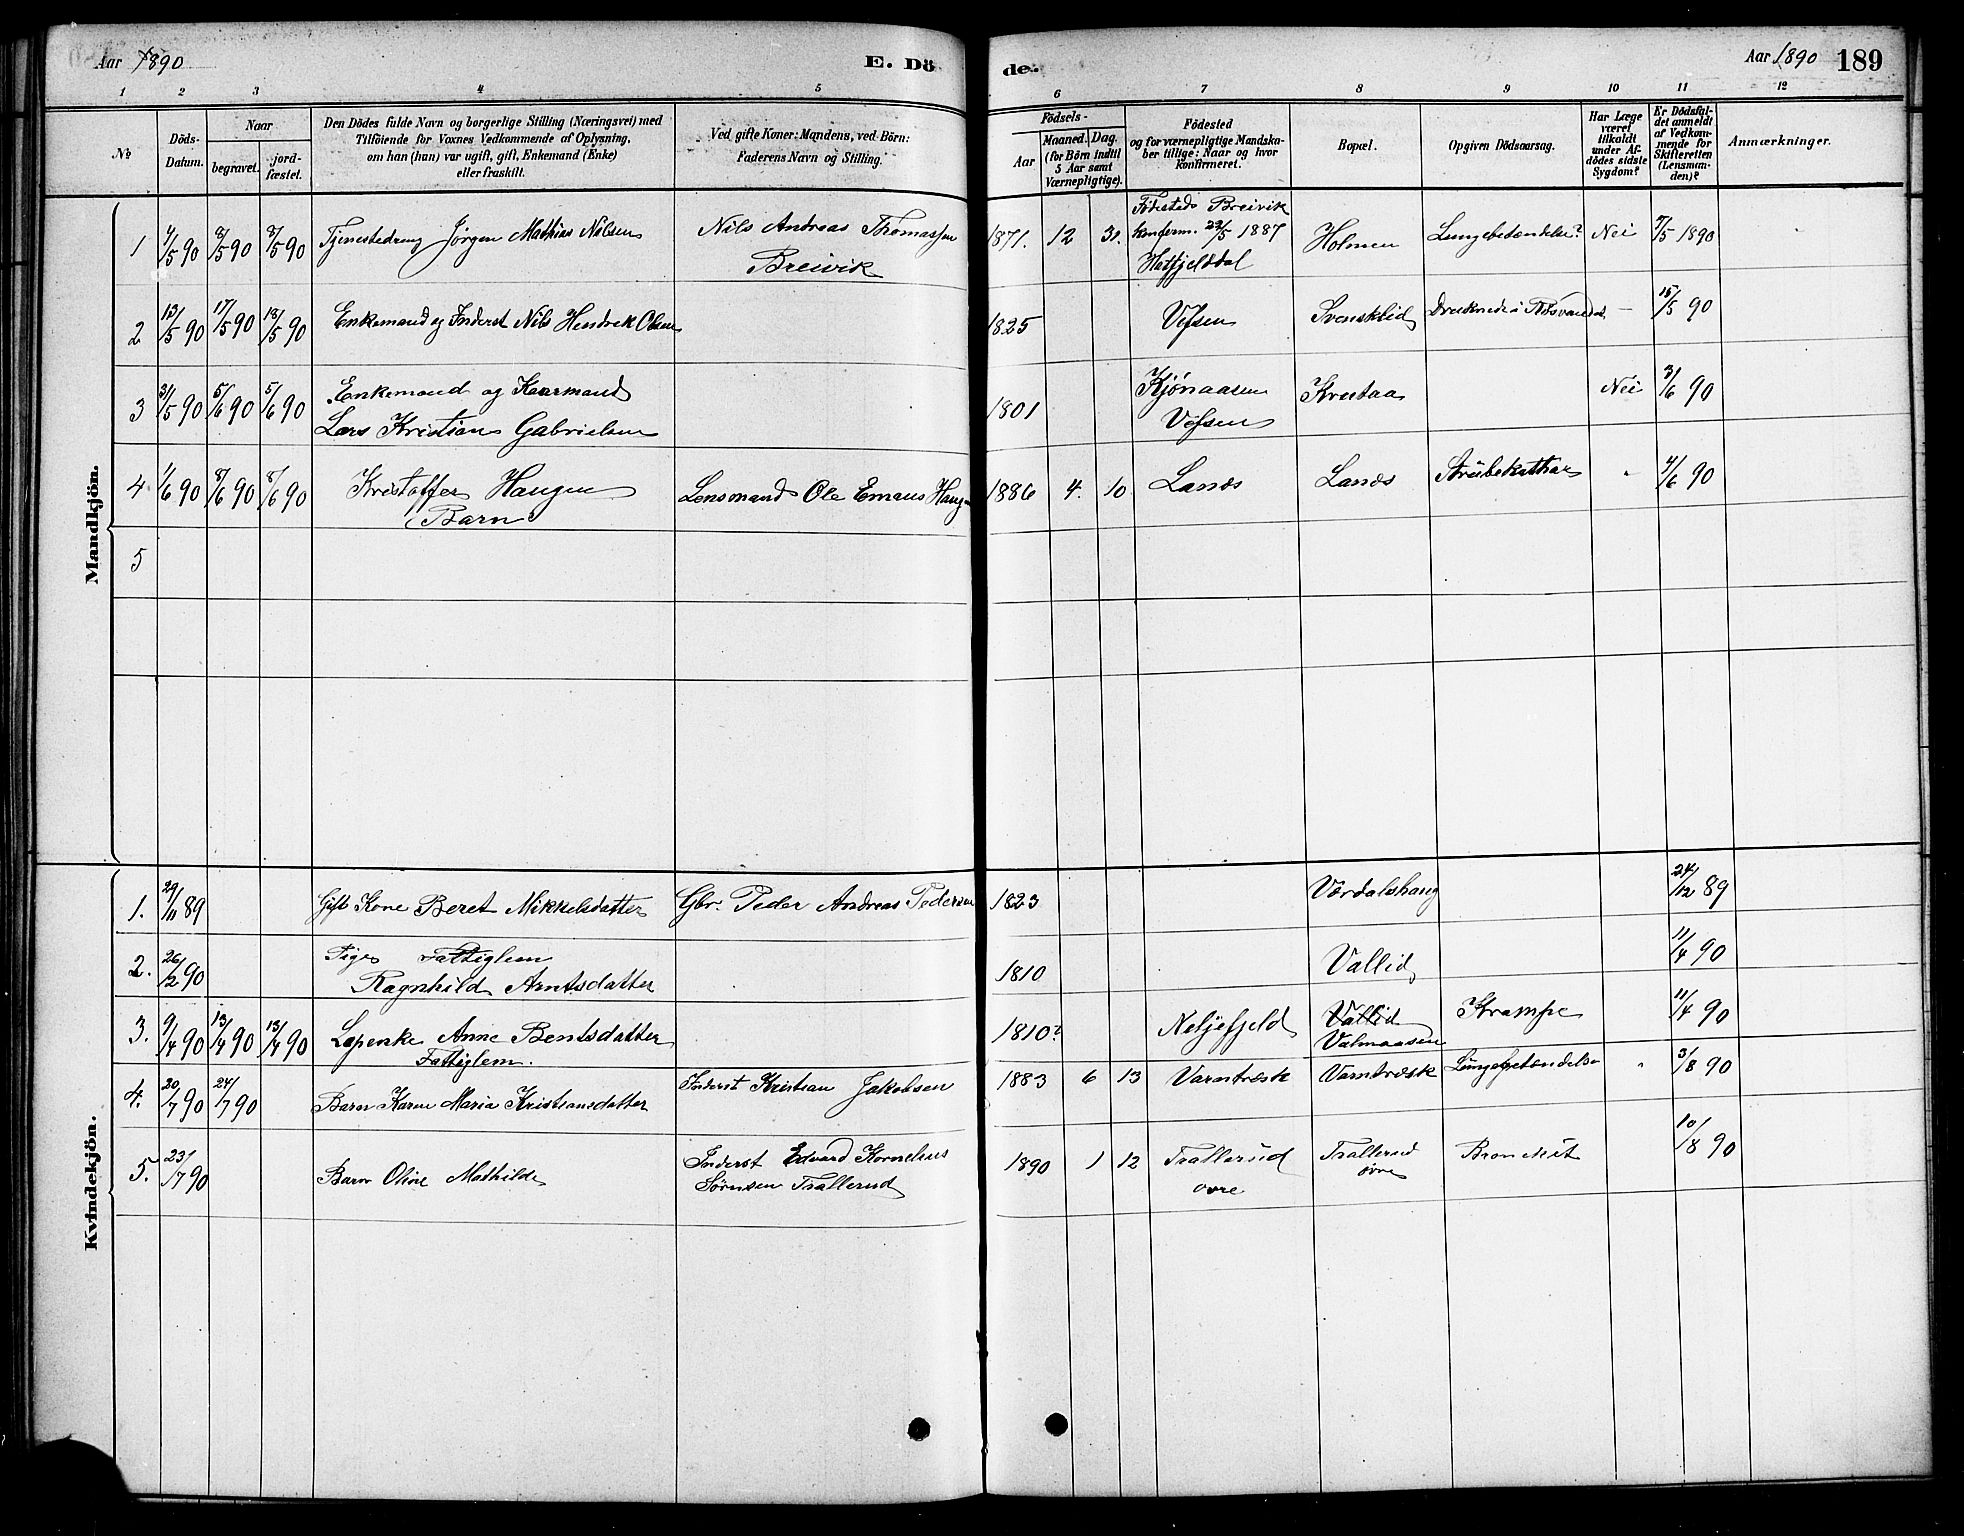 Aar 1890 E. Dö
de. Aar 1890 189
1 2 3 4 5 6 7 8 9 10 11 12
No
Döds-Datum.
Naar
begravet.
jord-fæstet.
Den Dödes fulde Navn og borgerlige Stilling (Næringsvei) med
Tilföiende for Voxnes Vedkommende af Oplysning,
om han (hun) var ugift, gift, Enkemand (Enke)
eller fraskilt.
Ved gifte Koner: Mandens, ved Börn:
Faderens Navn og Stilling.
Födsels-
Aar
Maaned. Dag.
(for Börn indtil
5 Aar samt
Værnepligtige).
Födested
og for værnepligtige Mandska-
ber tillige: Naar og hvor
konfirmeret.
Bopæl.
Opgiven Dödsaarsag.
Har Læge
været
tilkaldt
under Af-
dödes sidste
Sygdom?
Er Dödsfal-
det anmeldt
af Vedkom-
mende for
Skifteretten
(Lensman-
den)?
Anmærkninger.
Mandkjön.
1 4/5 90 8/5 90 8/5 90 Tjenestedreng Jörgen Mathias Nilsen
Nils Andreas Thomassen
Breivik
1871. 12 31.
Födested Breivik
konferm. 29/5 1887
Hatfjelddal
Holmen Lungebetændelse? Nei 7/5 1890
2 13/5 90 17/5 90 18/5 90 Enkemand og Inderst Nils Hendrik Olsen 1825 Vefsen Svensklid Druknede i Rösvandet — 15/5 90
3 31/5 90 5/6 90 5/6 90 Enkemand og Kaarmand
Lars Kristian Gabrielsen
1801 Kjönaasen
Vefsen
Krutaa Nei 3/6 90
4 1/6 90 8/6 90 8/6 90 Kristoffer Haugen
Barn
Lensmand Ole Emaus Haugen 1886 4. 10 Lanes Lanes Strubekathar " 4/6 90
5
Kvindekjön.
1. 29/11 89 Gift Kone Beret Mikkelsdatter Gbr. Peder Andreas Pedersen 1823 Vördalshaug 24/12 89
2. 26/2 90 Pige Fattiglem
Ragnhild Arntsdatter
1810 Vallid 11/4 90
3. 9/4 90 13/4 90 13/4 90 Lapenke Anne Bentsdatter
Fattiglem.
1810? Neljefjeld Vallid
Valmaasen
Krampe 11/4 90
4. 20/7 90 24/7 90 Barn Karen Maria Kristiansdatter Inderst Kristian Jakobsen 1883 6 13 Varntræsk Varntræsk Lungebetændelse " 3/8 90
5. 23/7 90 Barn Oline Mathilde
Inderst Edvard Kornelius
Sörnsen Trallerud
1890 1 12 Trallerud
övre
Trallerud
övre
10/8 90